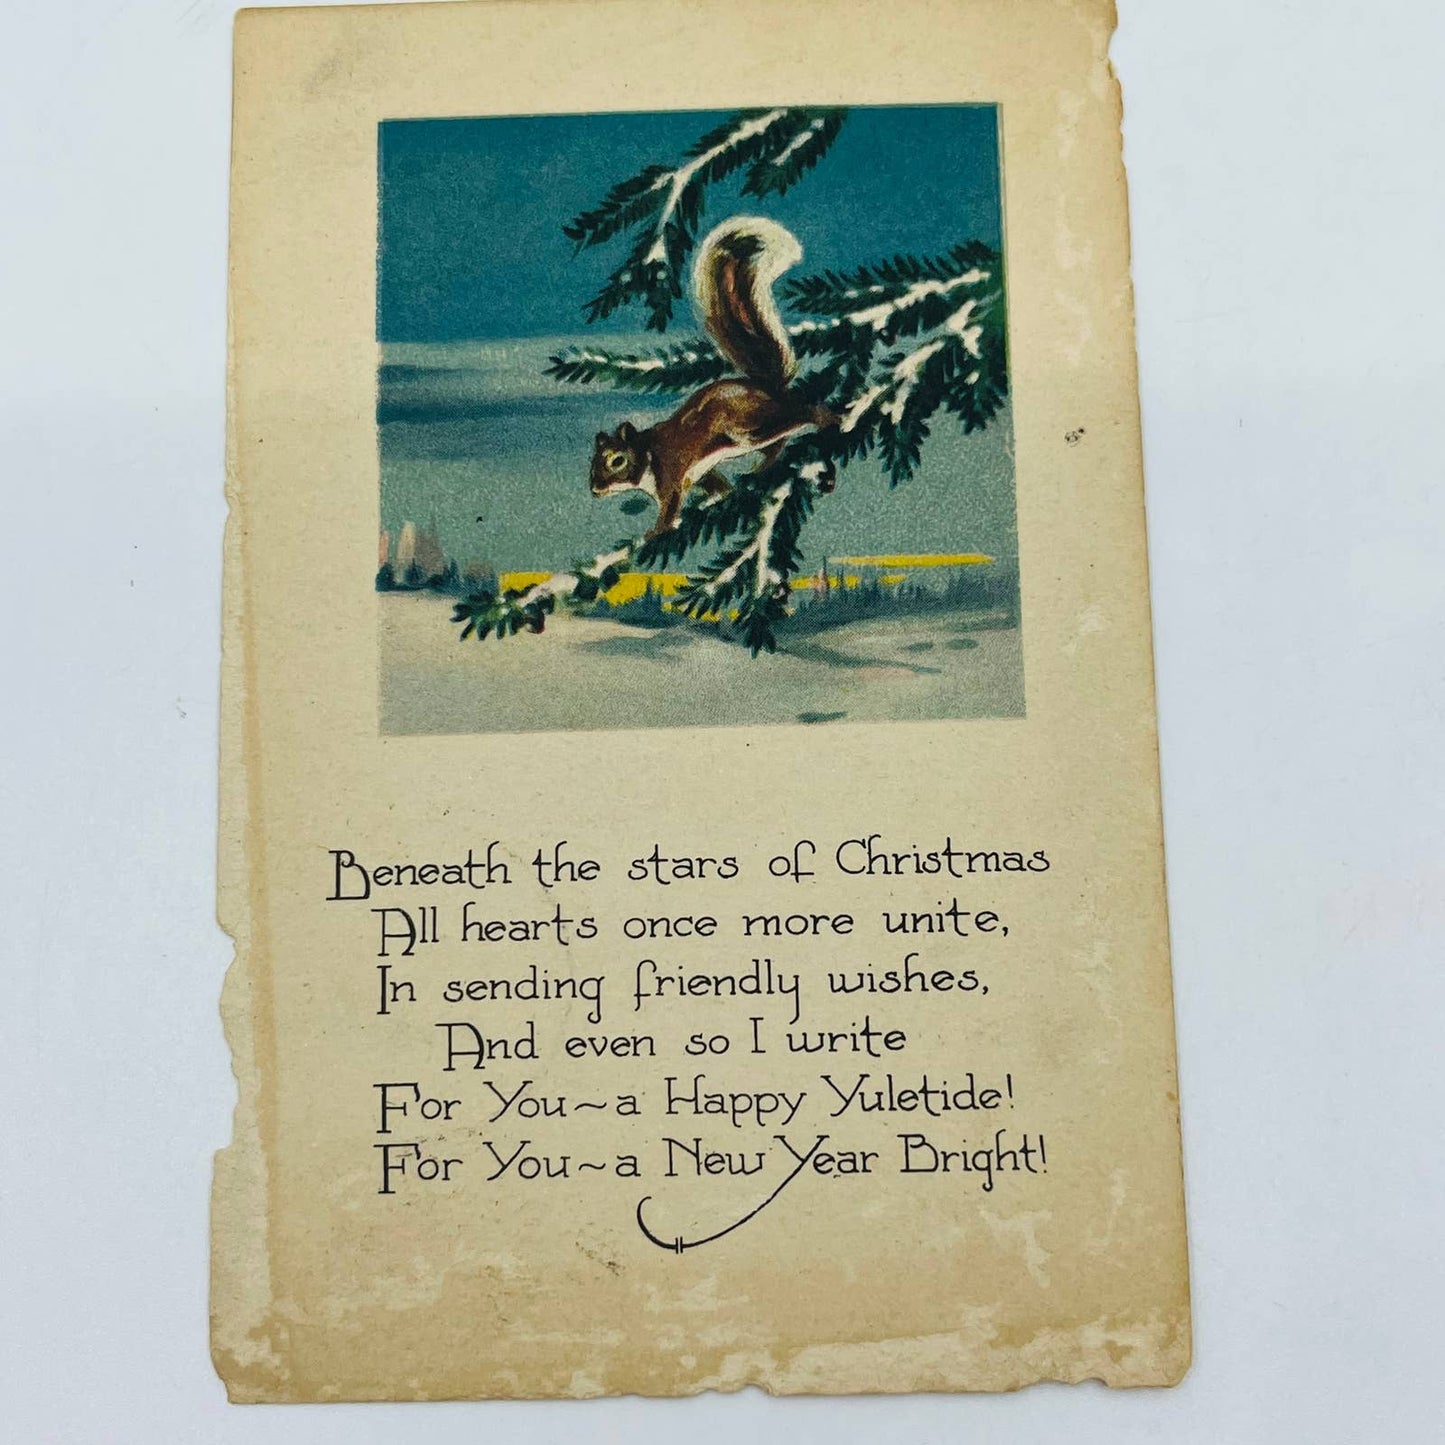 Beneath the stars of Christmas
All hearts once more unite,
In sending friendly wishes,
And even so I write
For You~a Happy Yuletide!
For You~a New Year Bright!